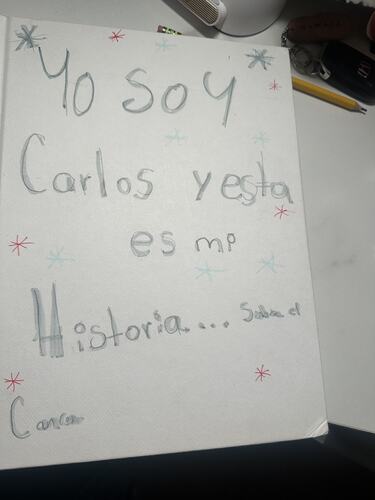 Yo soy
Carlos y esta
es mi
Historia... Sobre el
Cancer